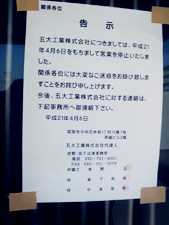 関係各位
告 示
五大工業株式会社につきましては、平成21
年4月6日をもちまして営業を停止いたしま
した。
関係各位には大変なご迷惑をお掛け致しま
すことをお詫び申し上げます。
今後、五大工業株式会社に対する連絡は、
下記事務所へ御連絡下さい。
平成21年4月6日
五大工業株式会社代理人
電話
FAX
弁護士